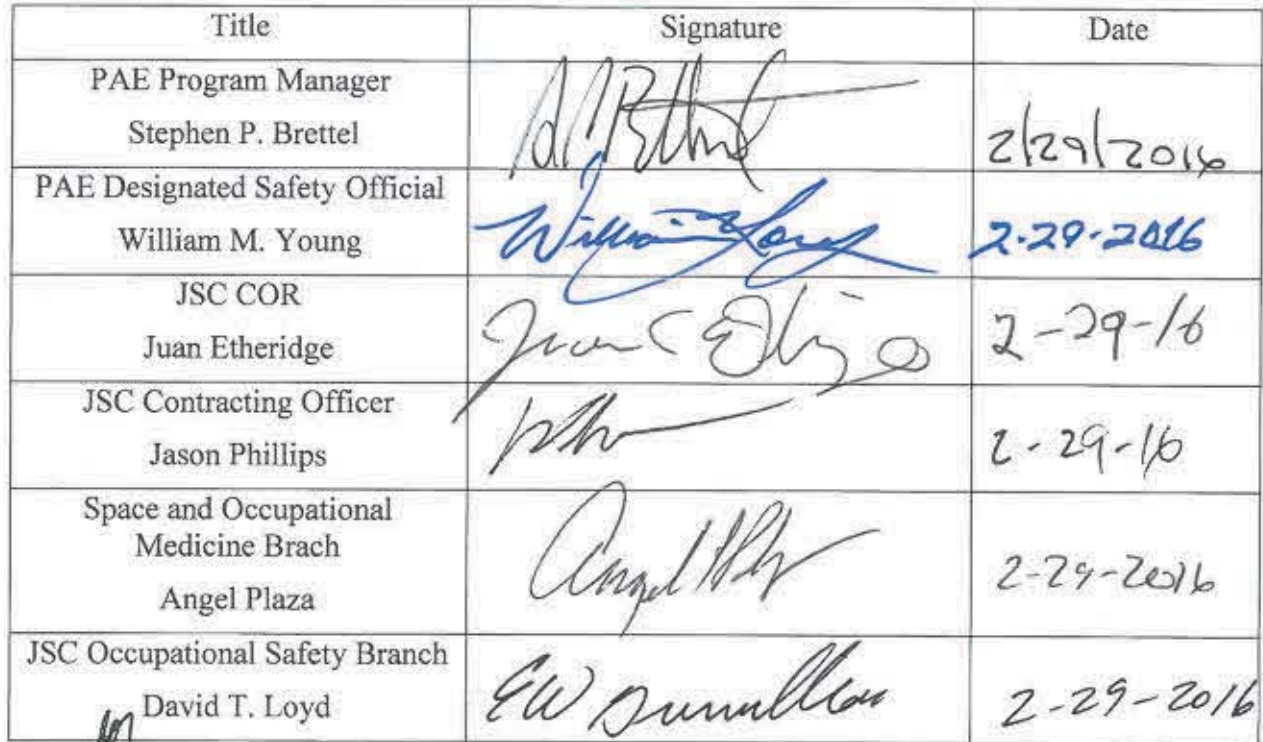 Title Signature Date
PAE Program Manager
Stephen P. Brettel 2/29/2016
PAE Designated Safety Official
William M. Young William Young 2-29-2016
JSC COR
Juan Etheridge Juan C E 2-29-16
JSC Contracting Officer
Jason Phillips 2-29-16
Space and Occupational
Medicine Brach
Angel Plaza Angel 2-29-2016
JSC Occupational Safety Branch
David T. Loyd EW 2-29-2016